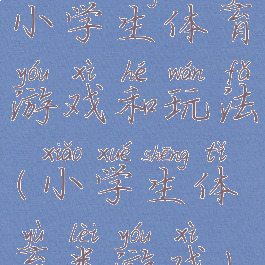 小学生体育
yóu xì hé wán fǎ
游戏和玩法
xiǎo xué shēng tǐ
（小学生体
yù lèi yóu xì
育类游戏）